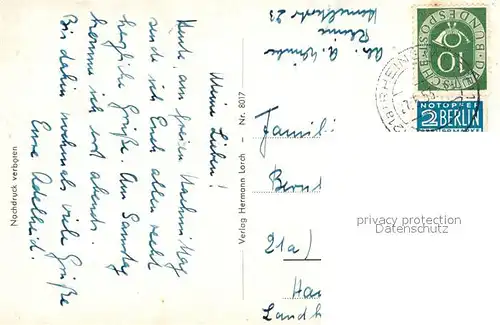 Meine Lieben!
Heute am freien Nachmittag
sende ich Euch allen recht
herzliche Grüße. Am Samstag
komme ich erst abends.
Bis dahin nochmals viele Grüße
Eure Adelheid.
Nachdruck verboten
Verlag Hermann Lorch - Nr. 8017
Abs. A.
Rheine
23
Famil
Bernd
21a)
Ha
Landk
DEUTSCHE BUNDESPOST
10
RHEINE
NOTOPFER
2 BERLIN
STEUERMARKE
privacy protection
Datenschutz